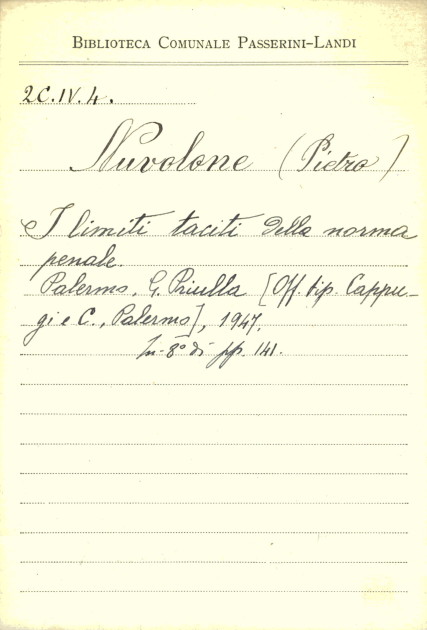 BIBLIOTECA COMUNALE PASSERINI-LANDI
2C.IV.4.
Nuvolone (Pietro)
I limiti taciti della norma
penale.
Palermo, G. Priulla [Off. tip. Cappu-
gi e C., Palermo], 1947.
In-8° di pp. 141.